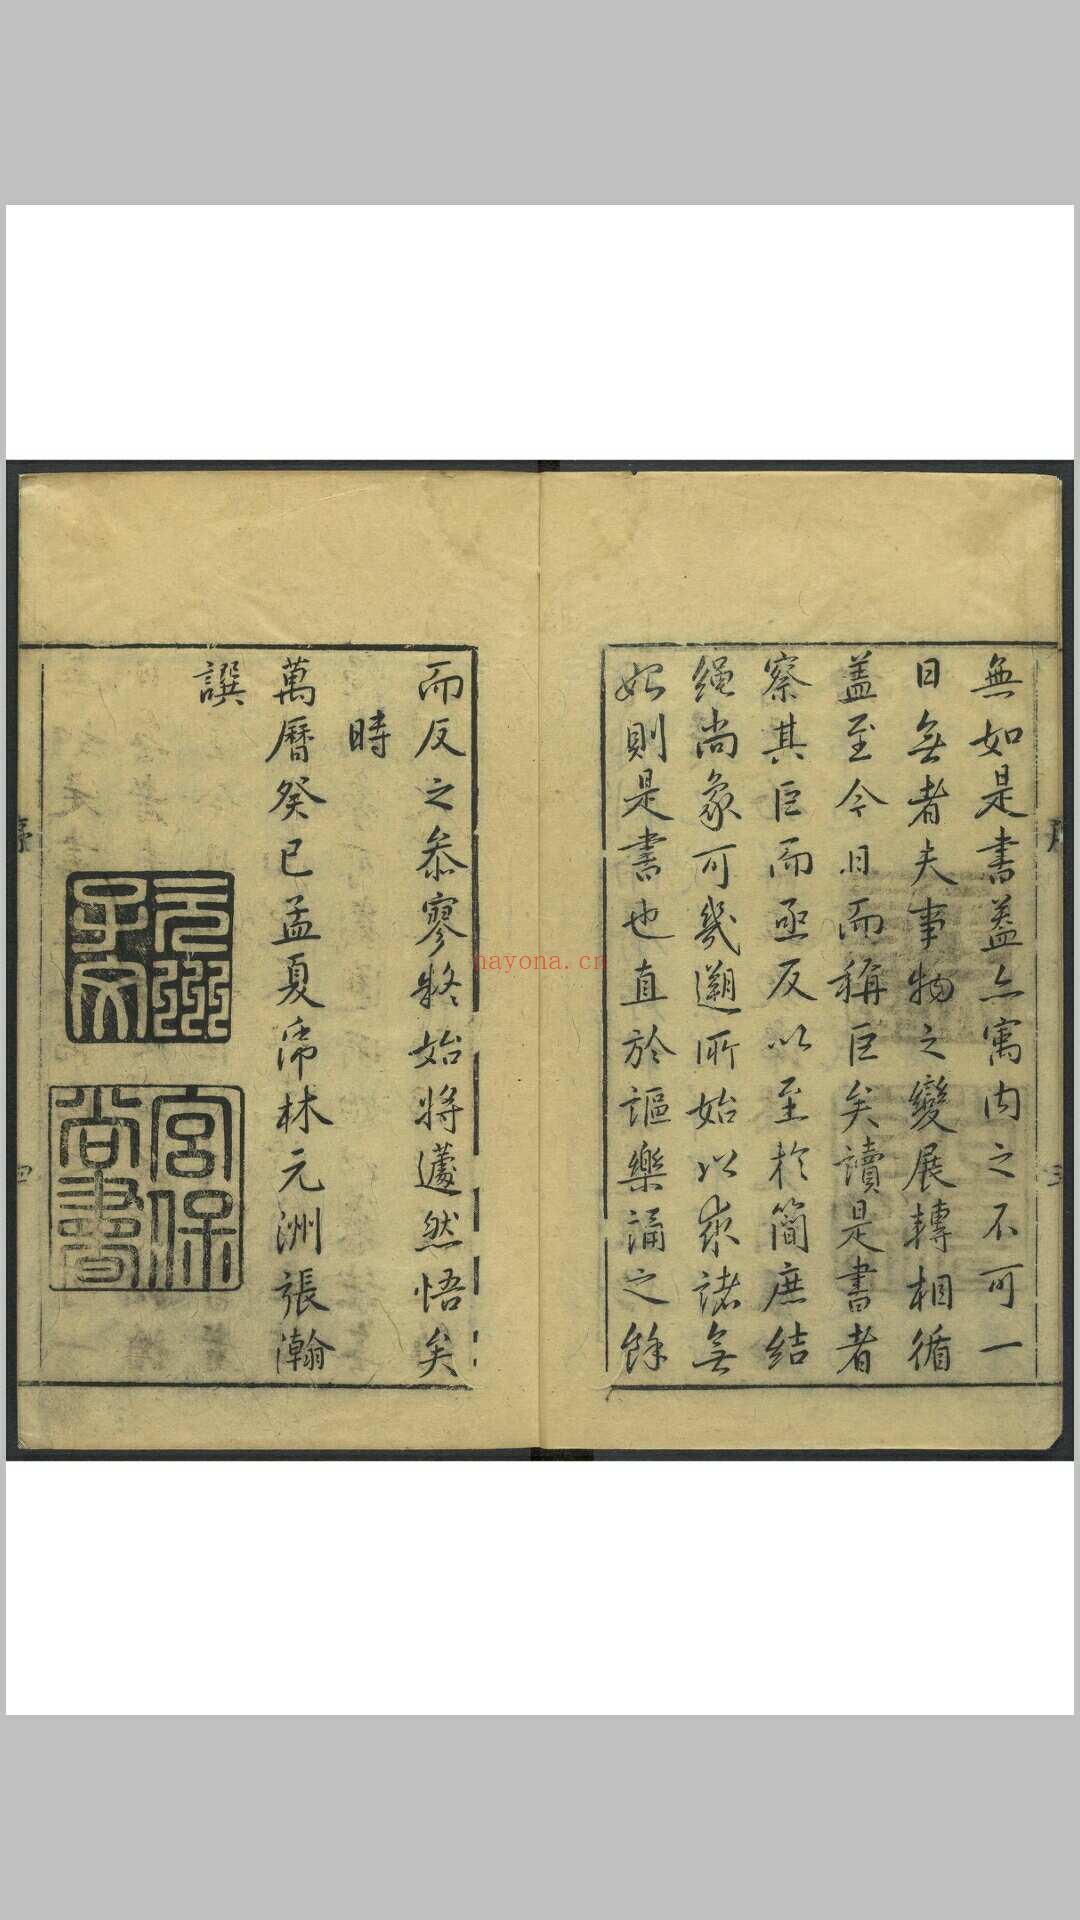 無如是書蓋亦寓内之不可一
日無者夫事物之變展轉相循
蓋至今日而稱巨矣讀是書者
察其巨而亟反以至於簡庶結
繩尚象可幾遡所始以冣諸無
始則是書也直於謳樂誦之餘
而反之叅寥終始將蘧然悟矣
時
萬曆癸巳孟夏虎林元洲張瀚
譔
元洲子文
宮保尚書
序
四
nayona.cn